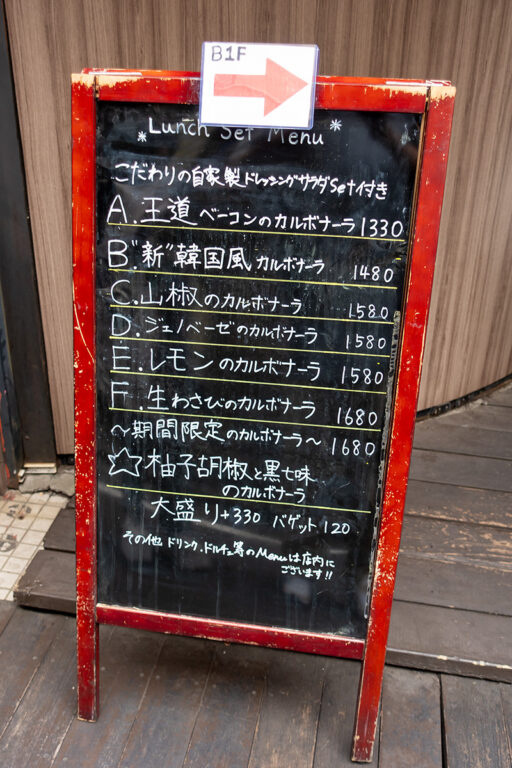 B1F
Lunch Set Menu
こだわりの自家製ドレッシングサラダset付き
A. 王道 ベーコンのカルボナーラ 1330
B."新"韓国風 カルボナーラ 1480
C. 山椒のカルボナーラ 1580
D. ジェノベーゼのカルボナーラ 1580
E. レモンのカルボナーラ 1580
F. 生わさびのカルボナーラ 1680
〜期間限定のカルボナーラ〜 1680
☆柚子胡椒と黒七味
のカルボナーラ
大盛り+330 バゲット 120
その他 ドリンク、ドルチェ等のMenuは店内に
ございます!!